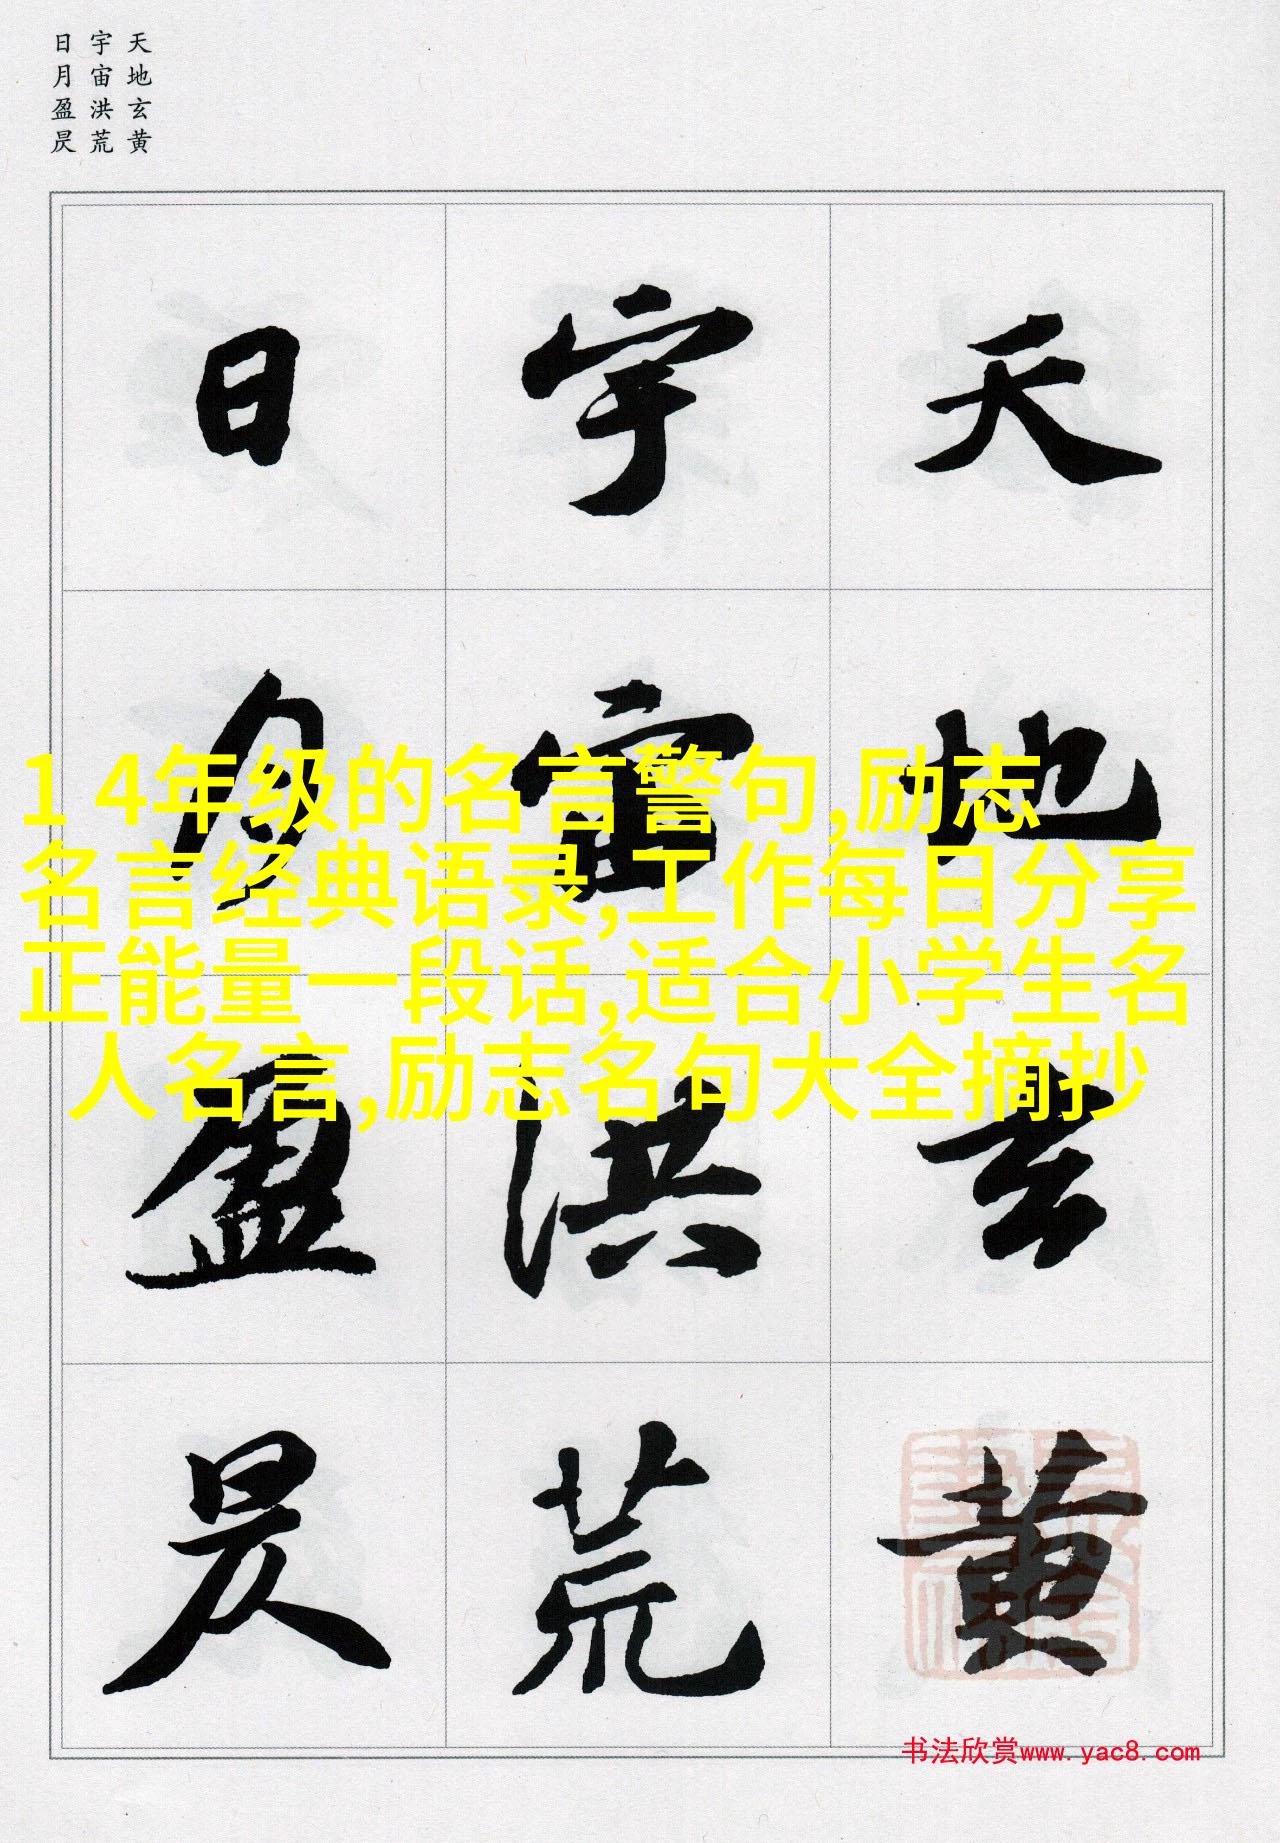 天地玄黄
宇宙洪荒
日月盈昃
天地玄黄
宇宙洪荒
日月盈昃
1 4年级的名言警句,励志
名言经典语录,工作每日分享
正能量一段话,适合小学生名
人名言,励志名句大全摘抄
书法欣赏www.yac8.com